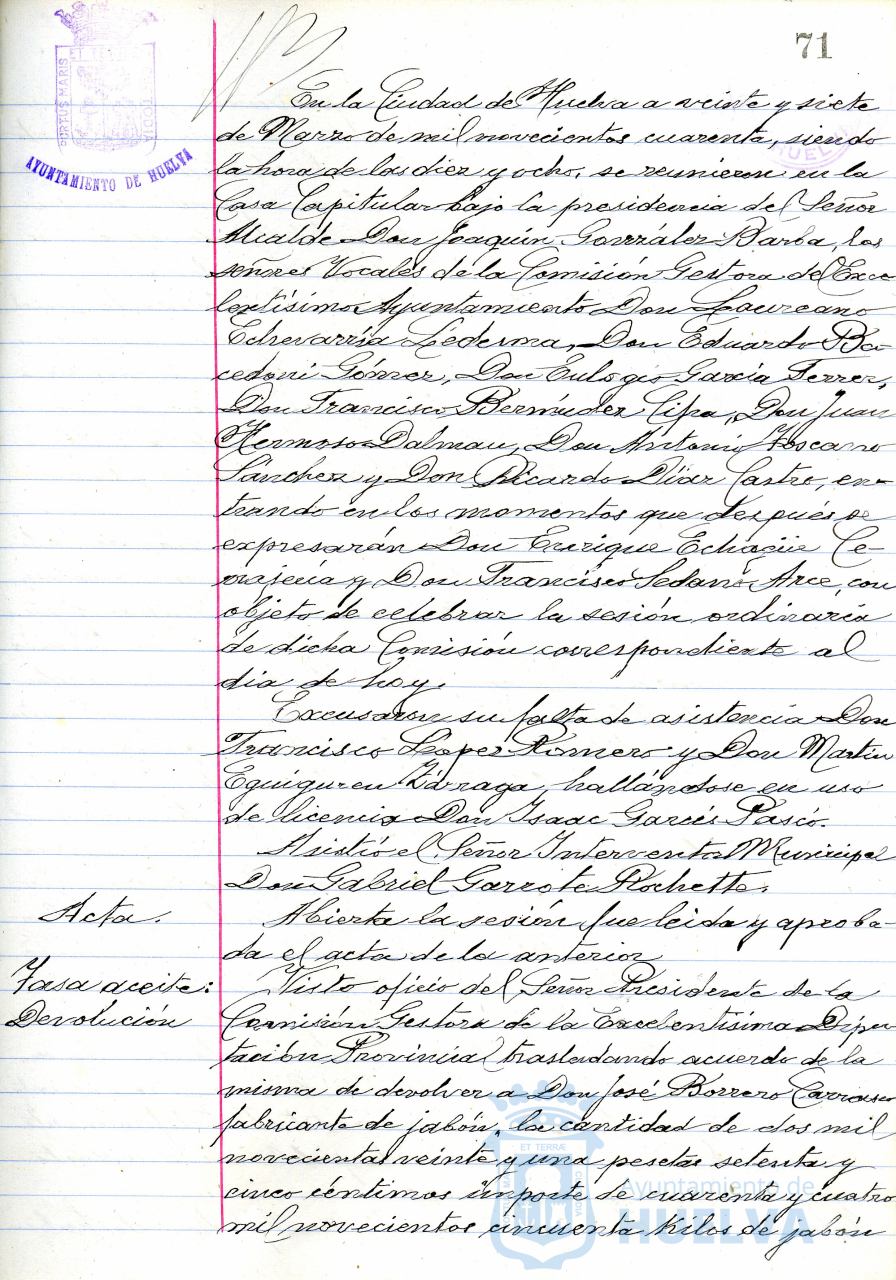 71
PORTUS MARIS
ET TERRAE
CUSTODIA
AYUNTAMIENTO DE HUELVA
HUELVA
En la Ciudad de Huelva a veinte y siete
de Marzo de mil novecientos cuarenta, siendo
la hora de las diez y ocho, se reunieron en la
Casa Capitular bajo la presidencia del Señor
Alcalde Don Joaquín González Barba, los
señores Vocales de la Comisión Gestora del Exce
lentísimo Ayuntamiento Don Laureano
Echevarría Ledesma, Don Eduardo Ba-
cedoni Gómez, Don Eulogio García Ferrer,
Don Francisco Bermúdez Cipa, Don Juan
Hermoso Dalmau, Don Antonio Toscano
Sánchez y Don Ricardo Díaz Castro, en-
trando en los momentos que después se
expresarán Don Enrique Echagüe
y Don Francisco Sedano Arce, con
objeto de celebrar la sesión ordinaria
de dicha Comisión correspondiente al
dia de hoy.
Excusaron su falta de asistencia Don
Francisco López Romero y Don Martín
Eguiguren Zárraga, hallándose en uso
de licencia Don Isaac Garcés Pascó.
Asistió el Señor Interventor Municipal
Don Gabriel Garrote Rochette.
Acta.
Abierta la sesión fue leida y aproba-
da el acta de la anterior
Tasa aceite:
Devolución
Visto oficio del Señor Presidente de la
Comisión Gestora de la Excelentísima Dipu
tación Provincial trasladando acuerdo de la
misma de devolver a Don José Borrero Carrasco
fabricante de jabón, la cantidad de dos mil
novecientas veinte y una pesetas setenta y
cinco céntimos importe de cuarenta y cuatro
mil novecientos cincuenta kilos de jabón
ET TERRAE
Ayuntamiento de
HUELVA